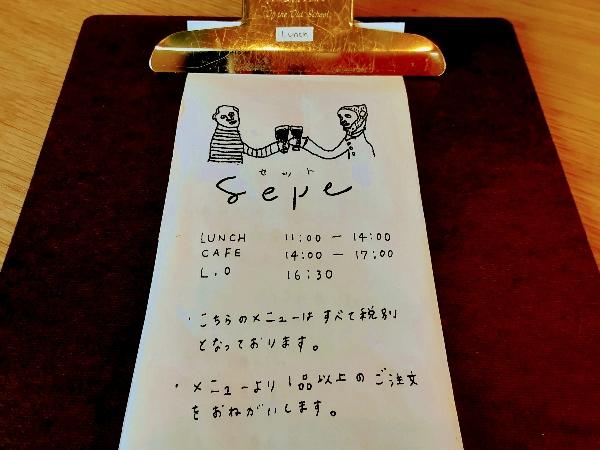 Of the Old School
Lunch
セット
sepe
LUNCH 11:00 - 14:00
CAFE 14:00 - 17:00
L.O 16:30
・こちらのメニューは すべて税別
となっております。
・メニューより 1品以上の ご注文
をおねがいします。